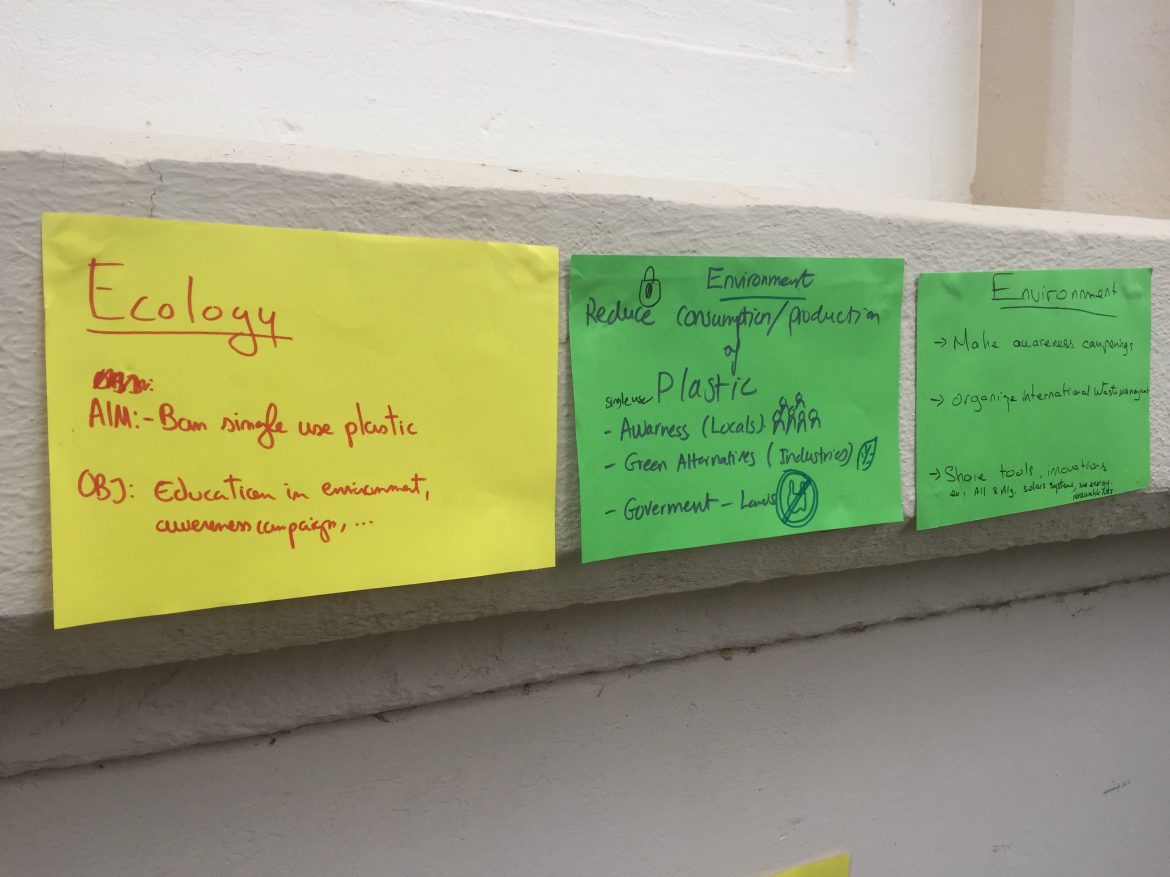 Ecology
AIM:- Ban single use plastic
OBJ: Education in environment,
awereness campaign, ...
Environment
Reduce consumption/production
of
single use Plastic
- Awarness (Locals).
- Green Alternatives (Industries)
- Goverment - Laws
Environment
→ Make awareness campaings
→ Organize International Waste managment
→ Share tools, innovations
ex: All & Nlg. solars systems, sun energy.